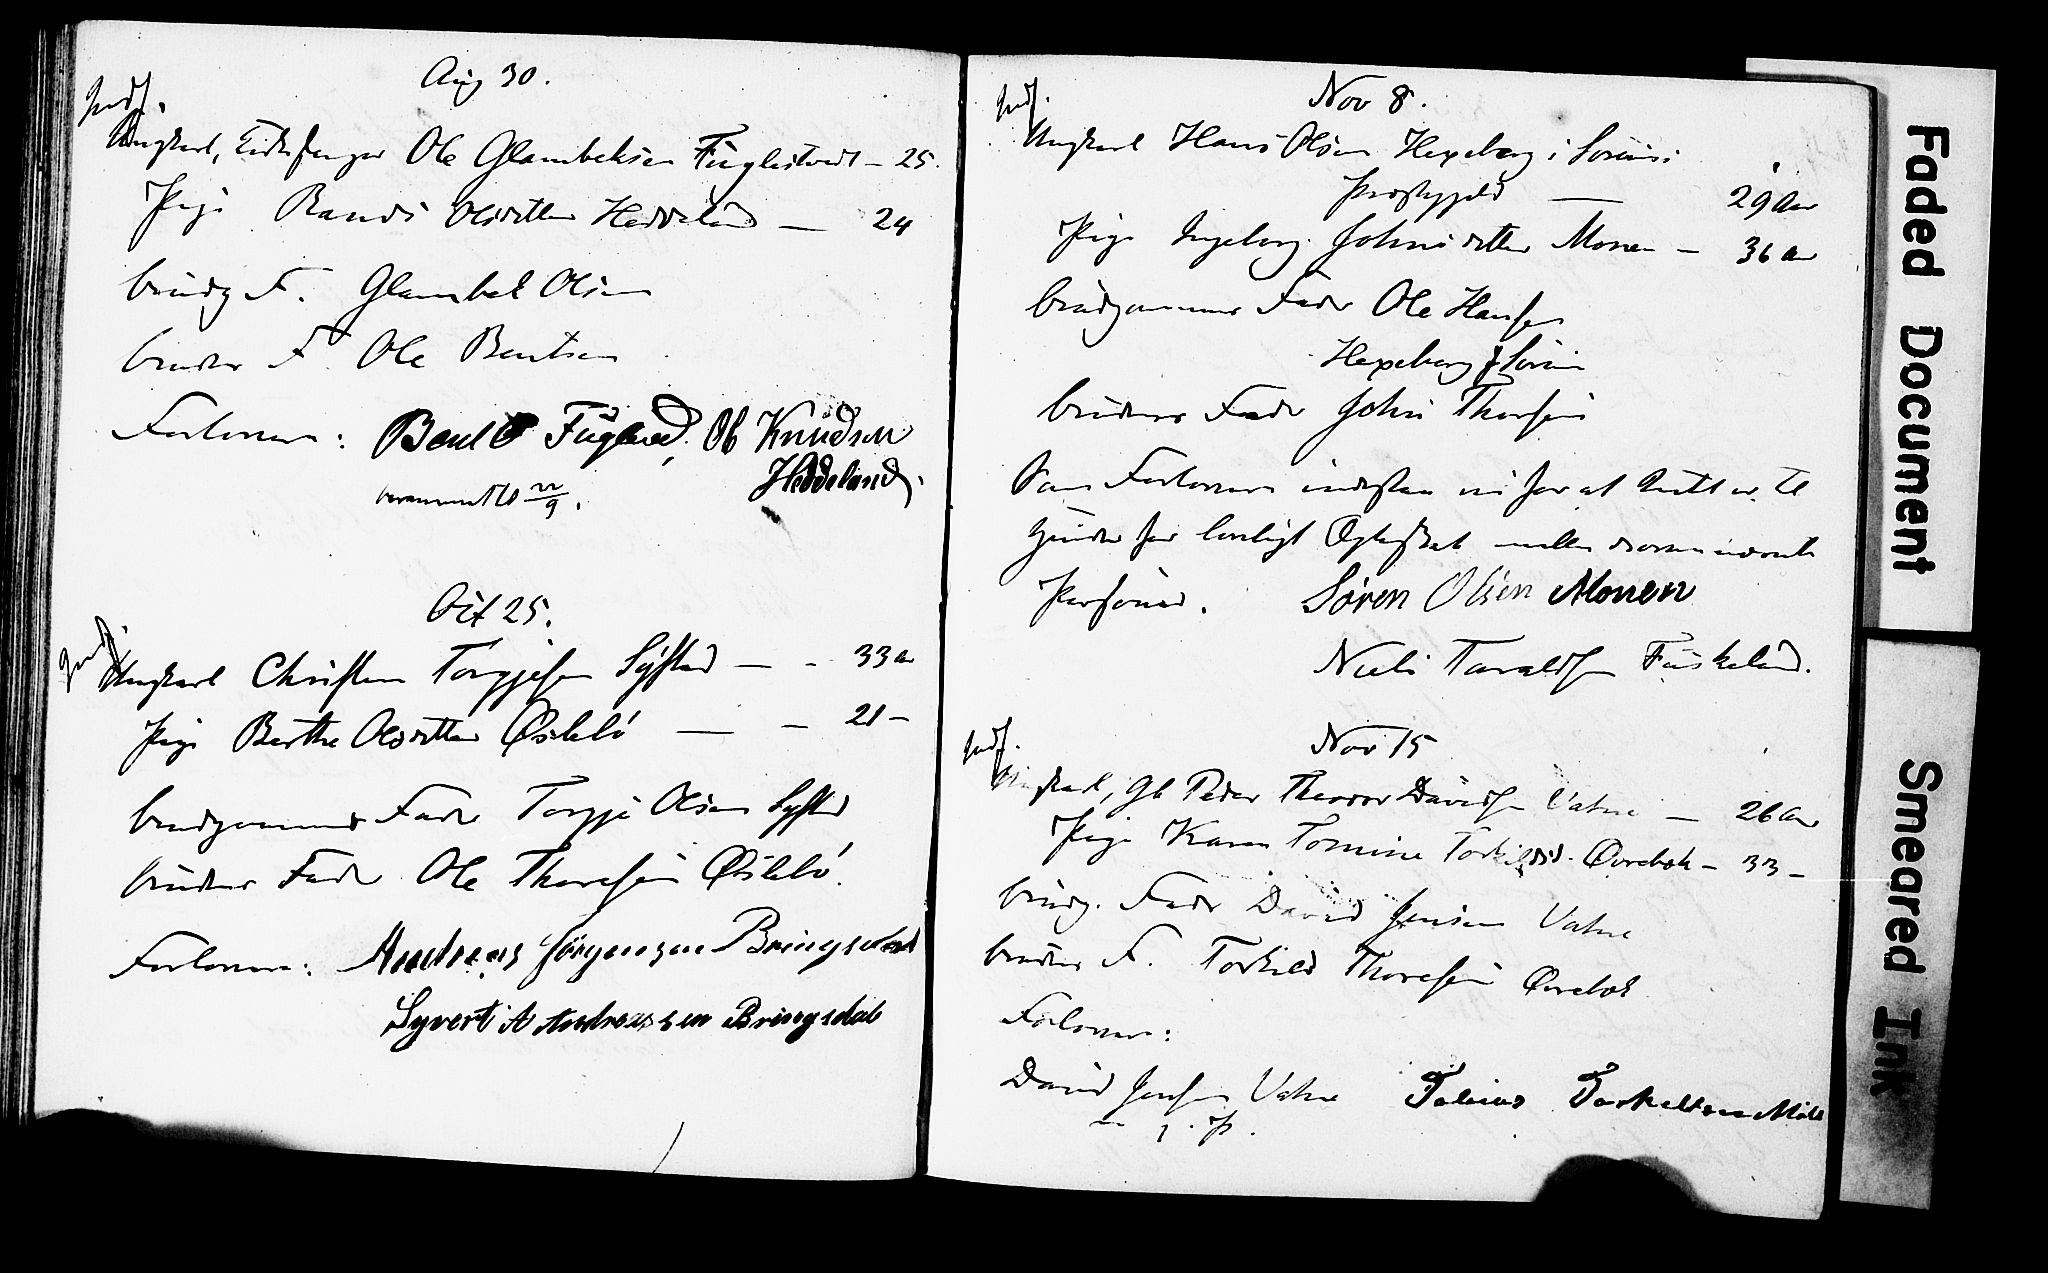 Aug 30.
Indf.
Ungkarl, Ole Glambeksen Fuglestvedt – 25.
Pige Randi Olsdatter Heddeland — 24
brudg F. Glambek Olsen
brudens F. Ole Bentsen
Forlovere: Bent O Fugleved, Ole Knudsen
Heddeland.
Oct 25.
Indf.
Ungkarl Christen Torgjesen Syfted — - 33 a
Pige Berthe Olsdatter Øslebö — – 21 –
brudgommens Fader Torgje Olsen Syfted
brudens Fader Ole Thoresen Øslebö.
Forlovere: Andreas Jörgensen Bringsdal
Syvert A Andreassen Bringsdal
Nov 8.
Indf.
Ungkarl Hans Olsen Hexeberg i Søruns
Præstegjeld — 29 Aar
Pige Ingeborg Johnsdatter Monen – 36 a
brudgommens Fader Ole Hansen
Hexeberg Sørum
brudens Fader John Thorsen
Som Forlovere indestaa vi for at Intet er til
Hinder for lovligt Ægteskab mellem ovennævnte
Personer. Sören Olsen Monen
Niels Taraldsen Fuskeland.
Nov 15
Indf.
Ungkarl, Gb Peder Theodor Davidsen Vatne — 26 Aar
Pige Karen Tomine Torkildsd. Øvrebök – 33 –
brudg. Fader David Jensen Vatne
brudens F. Torkild Thoresen Øvrebök
Forlovere:
David Jensen Vatne Tobias Torkeltsen
m. p. P.
Faded Document
Smeared Ink